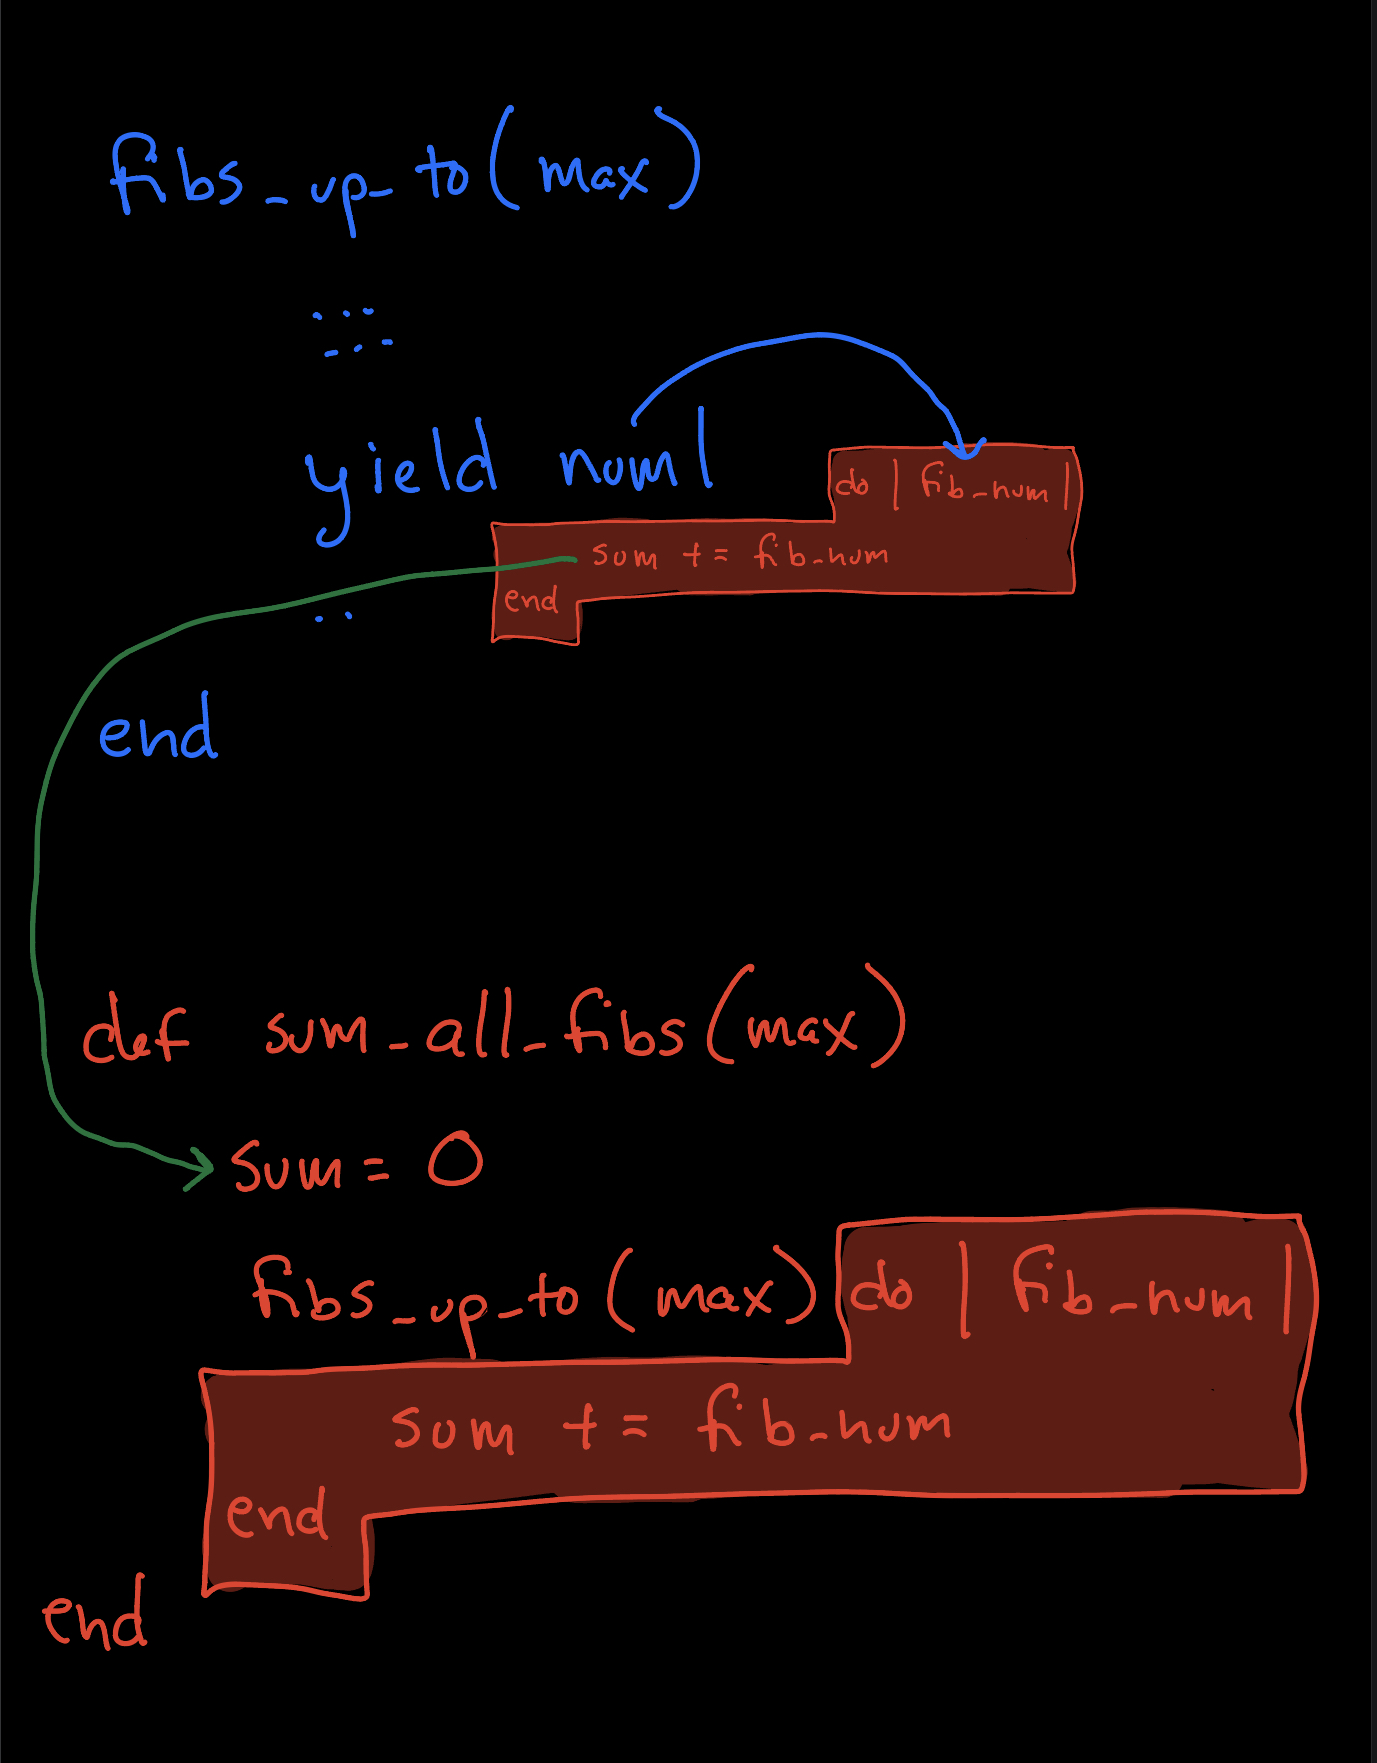 fibs_up_to(max)
...
...
yield num1
do |fib_num|
sum += fib_num
end
..
end
def sum_all_fibs(max)
sum = 0
fibs_up_to(max) do |fib_num|
sum += fib_num
end
end